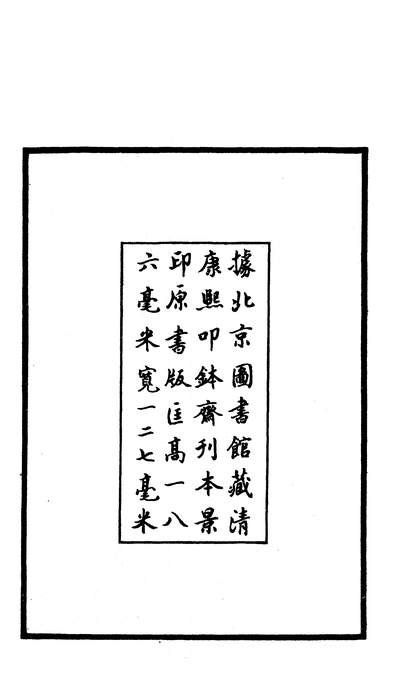 據北京圖書館藏清
康熙叩鉢齋刊本景
印原書版匡高一八
六毫米寬一二七毫米